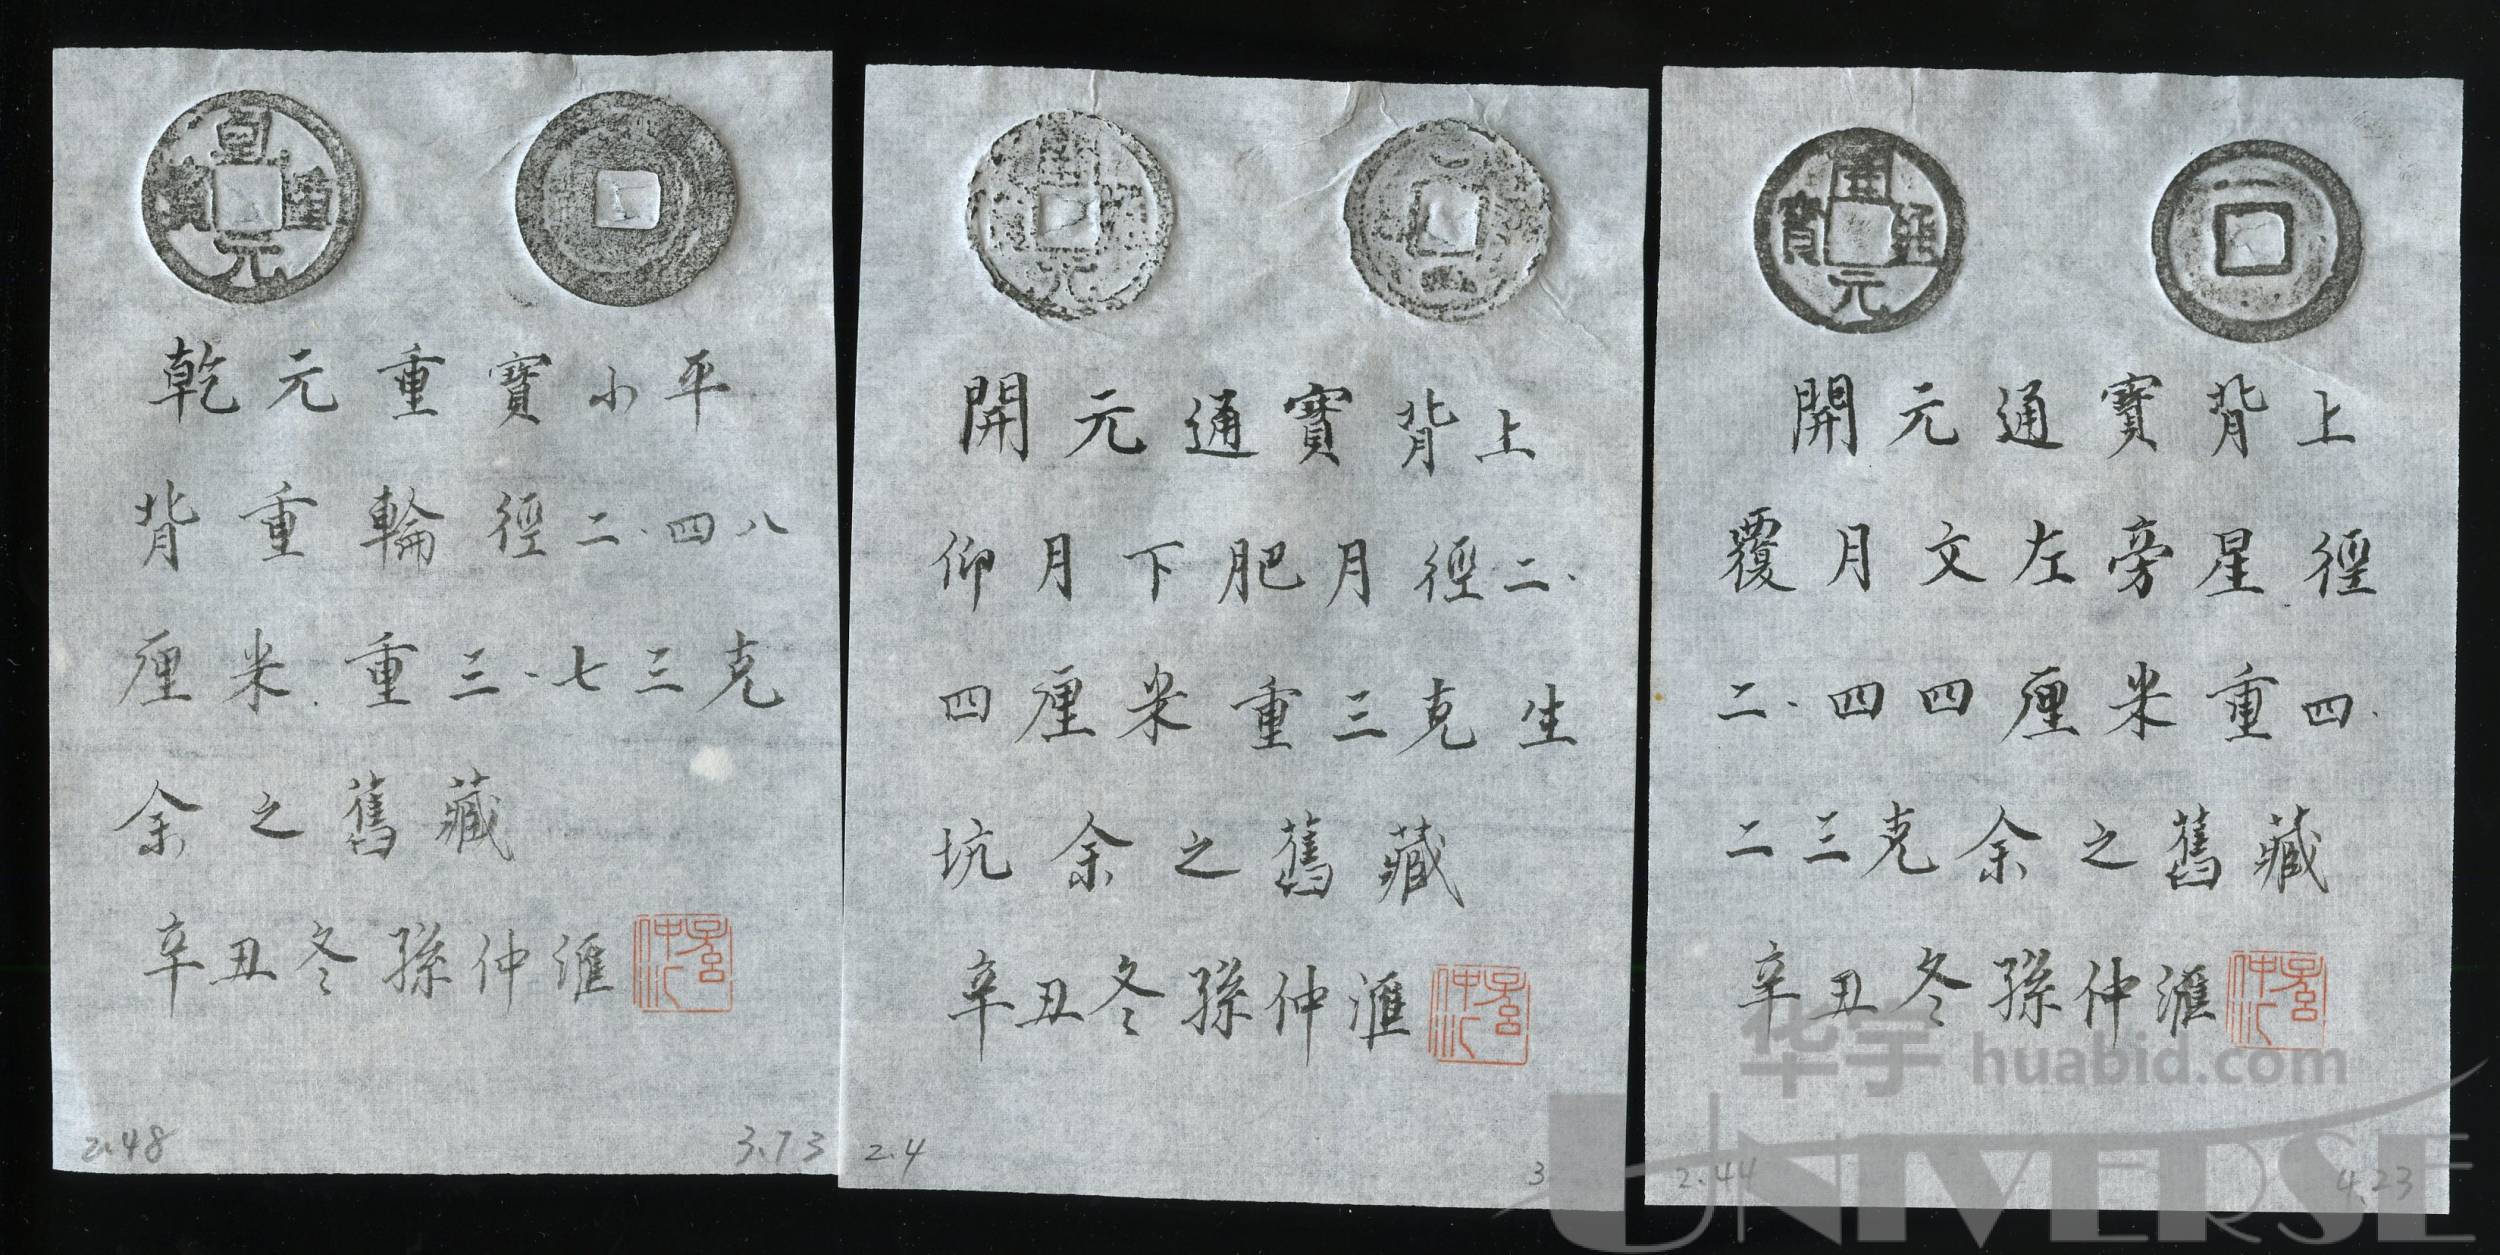 乾元重寶小平
背重輪徑二·四八
厘米重三·七三克
余之舊藏
辛丑冬孫仲滙
孫仲汇
2.48
3.73
開元通寶
開元通寶背上
仰月下肥月徑二·
四厘米重三克生
坑余之舊藏
辛丑冬孫仲滙
孫仲汇
2.4
3
開元通寶
開元通寶背上
覆月文左旁星徑
二·四四厘米重四·
二三克余之舊藏
辛丑冬孫仲滙
孫仲汇
2.44
4.23
华宇 huabid.com
UNIVERSE